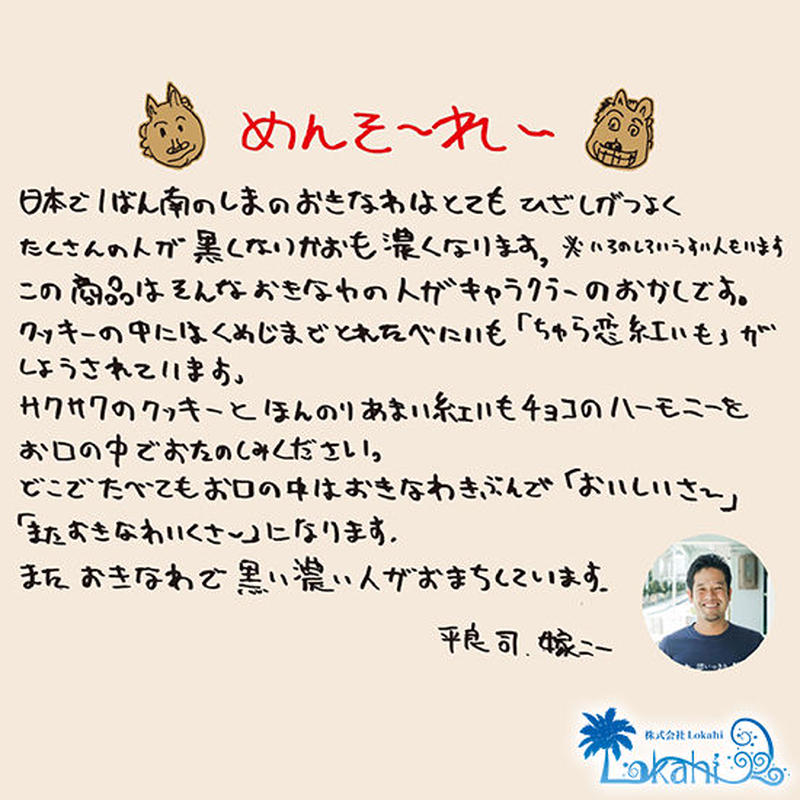 めんそ〜れ〜
日本で1ばん南のしまのおきなわはとても ひざしがつよく
たくさんの人が 黒くないかおも 濃くなります。※いろのしろいうすい人もいます
この商品はそんなおきなわの人がキャラクターのおかしです。
クッキーの中にはくめじまでとれたべにいも「ちゅら恋紅いも」が
しようされています。
サクサクのクッキーと ほんのりあまい紅いもチョコのハーモニーを
お口の中でおたのしみください。
どこでたべてもお口の中はおきなわきぶんで「おいしいさ〜」
「またおきなわいくさ〜」になります。
また おきなわで 黒い濃い人がおまちしています。
平良司.嫁ニー
株式会社Lokahi
Lokahi